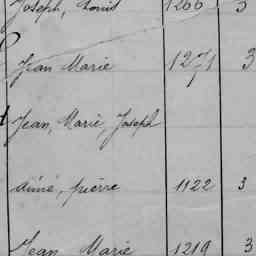 Joseph, Louis 1266 3
Jean Marie 1271 3
Jean, Marie, Joseph
Aimé, pierre 1122 3
Jean Marie 1219 3